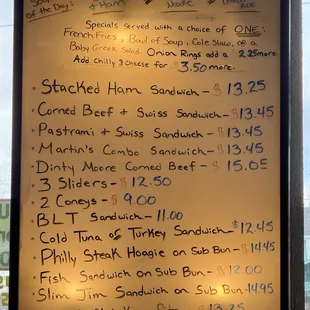 of the Day:
Noodle
Specials served with a choice of ONE:
French Fries, Bowl of Soup, Cole Slaw, or a
Baby Greek Salad. Onion Rings add a 2.25 more.
Add chilly & cheese for $3.50 more.
• Stacked Ham Sandwich - $13.25
• Corned Beef & Swiss Sandwich - $13.45
• Pastrami & Swiss Sandwich - $13.45
• Martin's Combo Sandwich - $13.45
• Dinty Moore Corned Beef - $15.05
• 3 Sliders - $12.50
• 2 Coneys - $9.00
• BLT Sandwich - 11.00
• Cold Tuna or Turkey Sandwich - $12.45
• Philly Steak Hoagie on Sub Bun - $14.45
• Fish Sandwich on Sub Bun - $12.00
• Slim Jim Sandwich on Sub Bun - 14.95
13.25